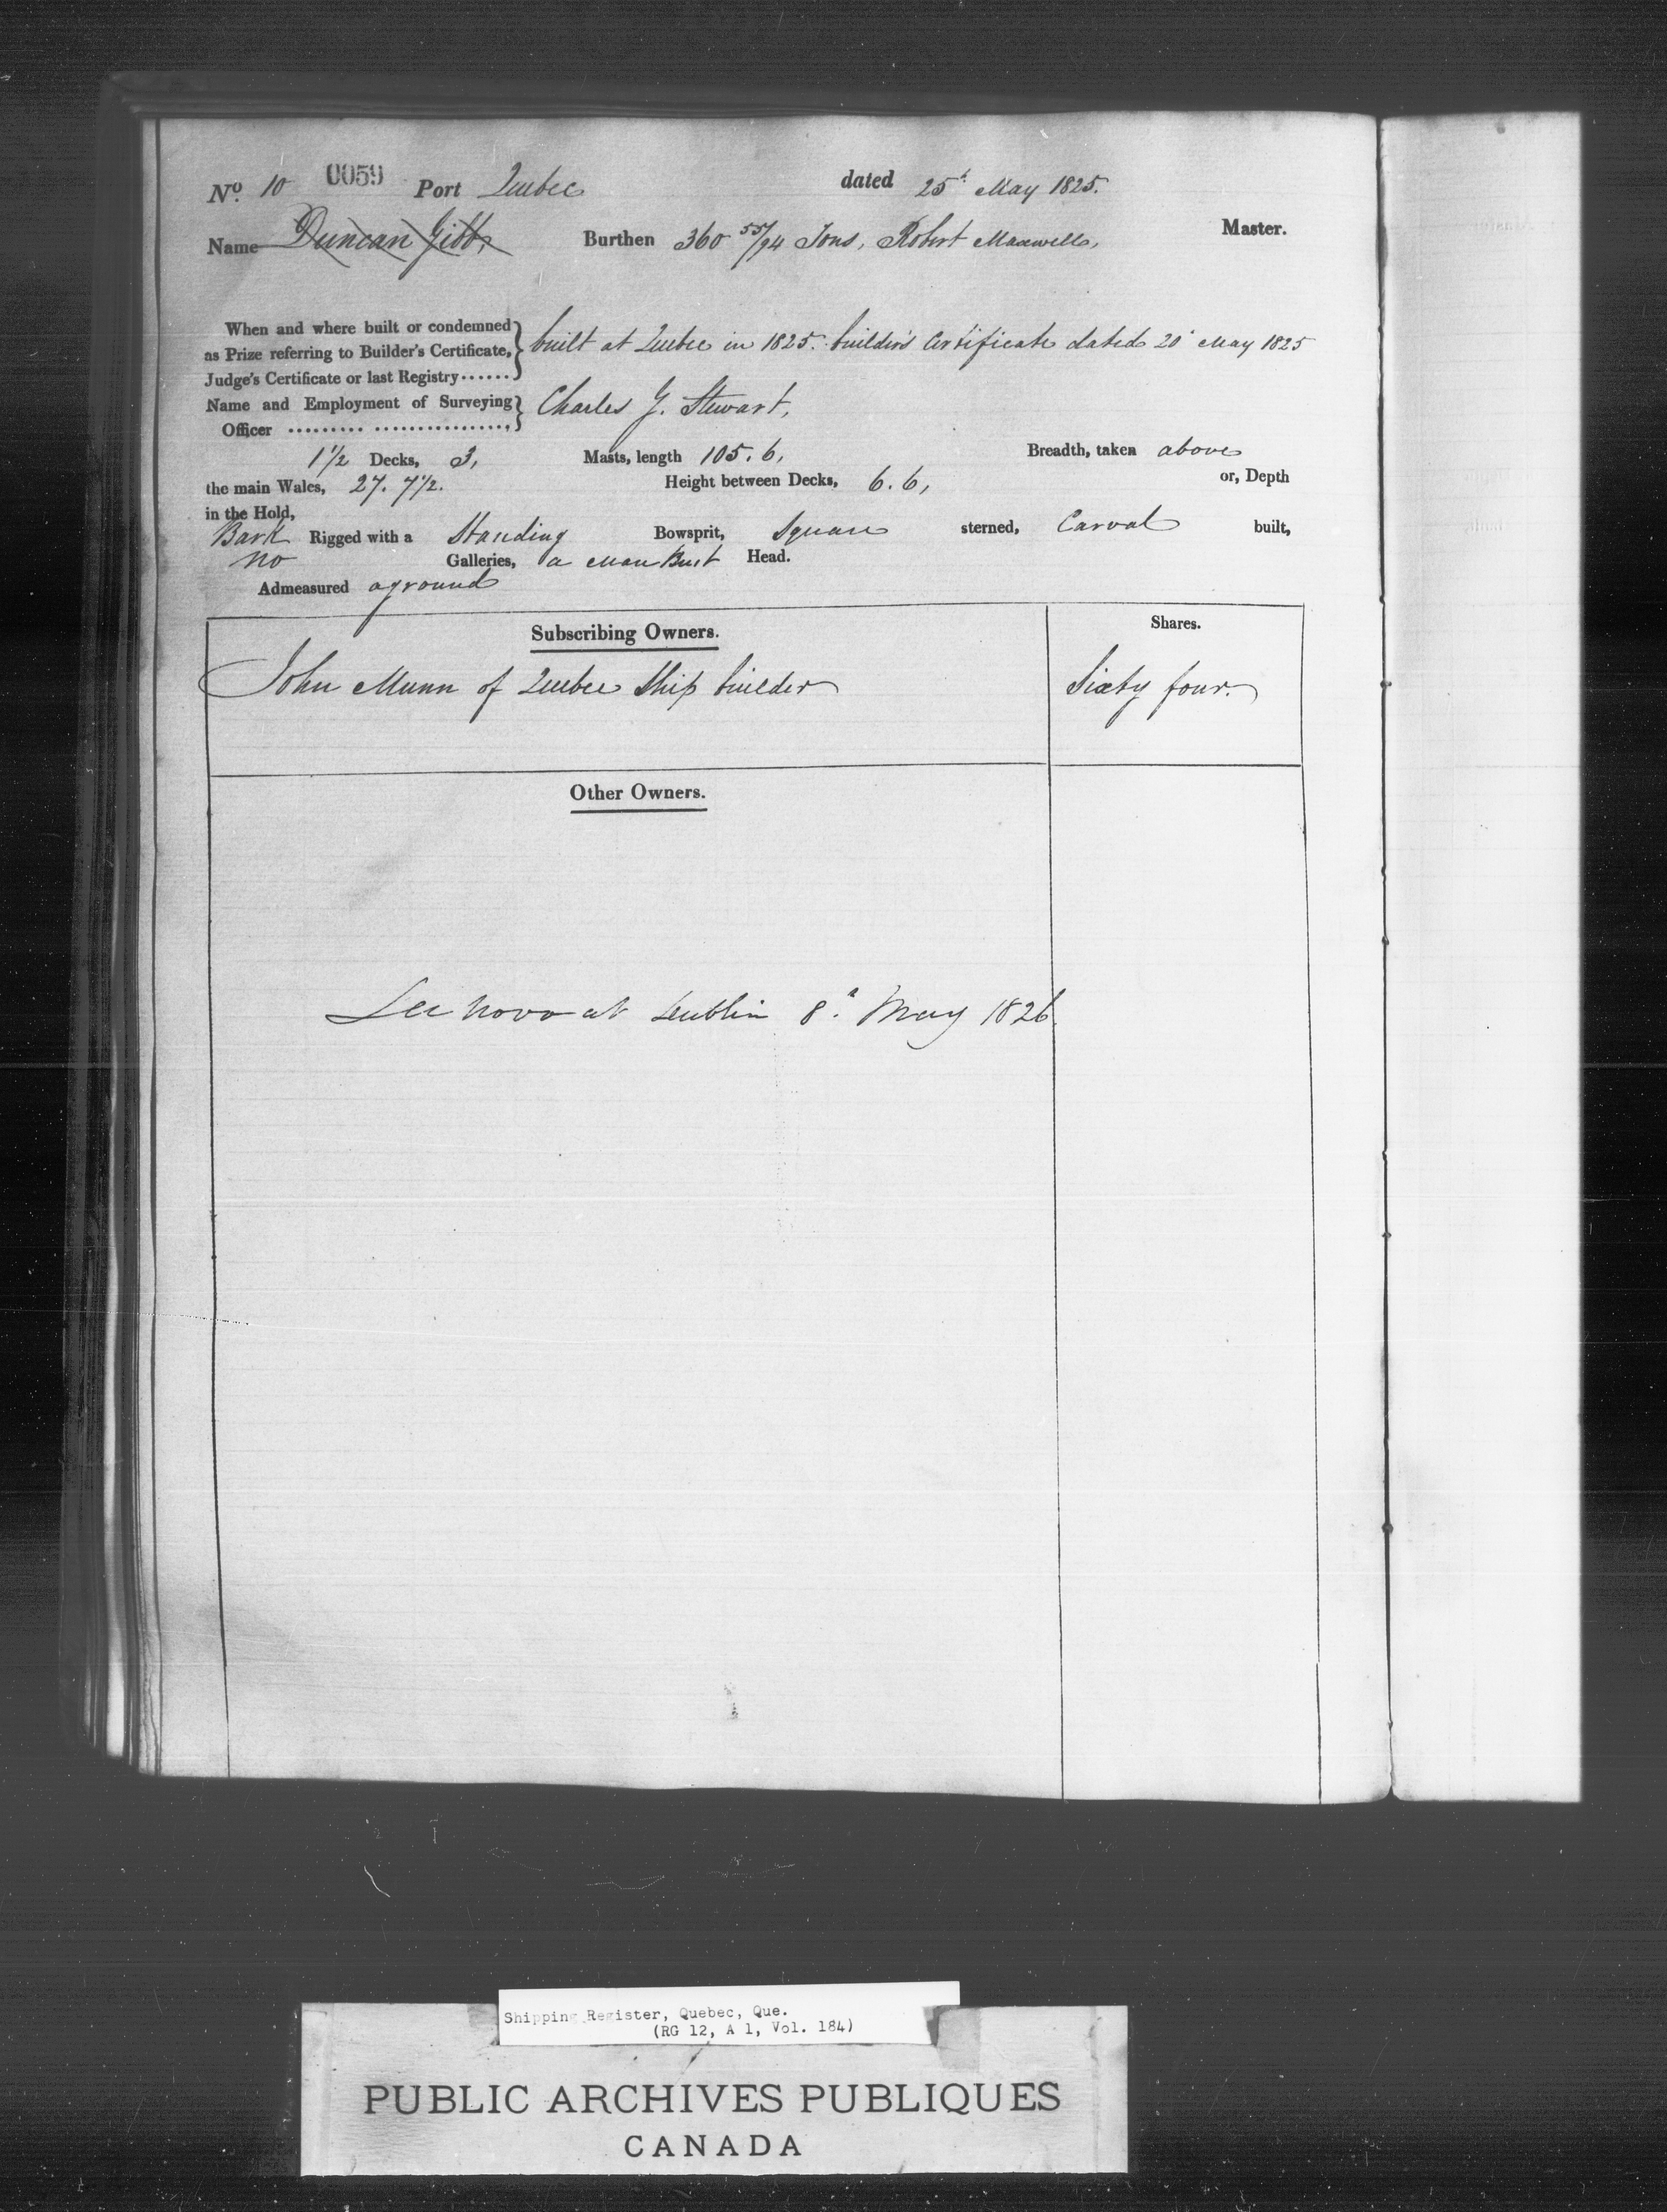 No. 10 0059 Port Quebec dated 25th May 1825.
Name Duncan Gibb, Burthen 360 55/94 Tons, Robert Maxwell, Master.
When and where built or condemned
as Prize referring to Builder's Certificate, built at Quebec in 1825. builder's Certificate dated 20 May 1825
Judge's Certificate or last Registry......
Name and Employment of Surveying Charles G. Stewart,
Officer ......... ................,
1 1/2 Decks, 3, Masts, length 105.6, Breadth, taken above
the main Wales, 27. 7 1/2. Height between Decks, 6.6, or, Depth
in the Hold,
Bark Rigged with a Standing Bowsprit, Square sterned, Carval built,
no Galleries, a Man Bust Head.
Admeasured aground
Subscribing Owners. Shares.
John Munn of Quebec Ship builder Sixty four.
Other Owners.
novo at Dublin 8th May 1826.
Shipping Register, Quebec, Que.
(RG 12, A 1, Vol. 184)
PUBLIC ARCHIVES PUBLIQUES
CANADA